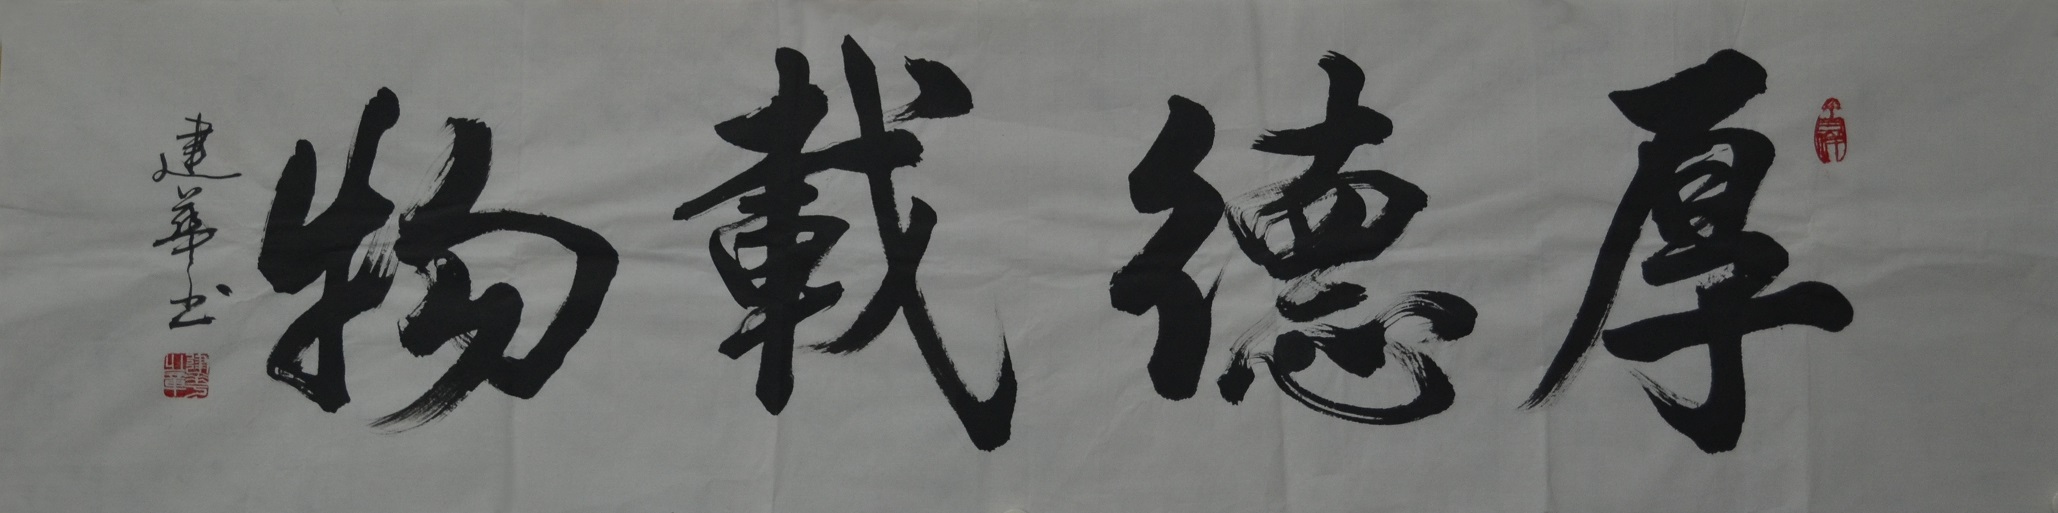 厚德載物
建華书